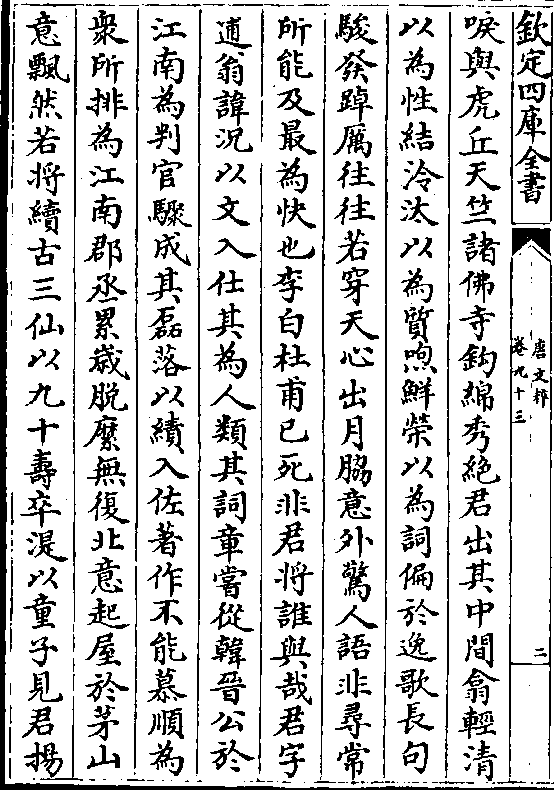 欽定四庫全書
唐文粹
卷九十三
二
唳與虎丘天竺諸佛寺鈎綿秀絶君出其中間翕輕清
以為性結泠汰以為質喣鮮榮以為詞偏於逸歌長句
駿發踔厲往往若穿天心出月脇意外驚人語非尋常
所能及最為快也李白杜甫已死非君將誰與哉君字
逋翁諱况以文入仕其為人類其詞章嘗從韓晉公於
江南為判官驟成其磊落以績入佐著作不能慕順為
衆所排為江南郡丞累歲脱縻無復北意起屋於茅山
意飄然若將續古三仙以九十壽卒湜以童子見君揚